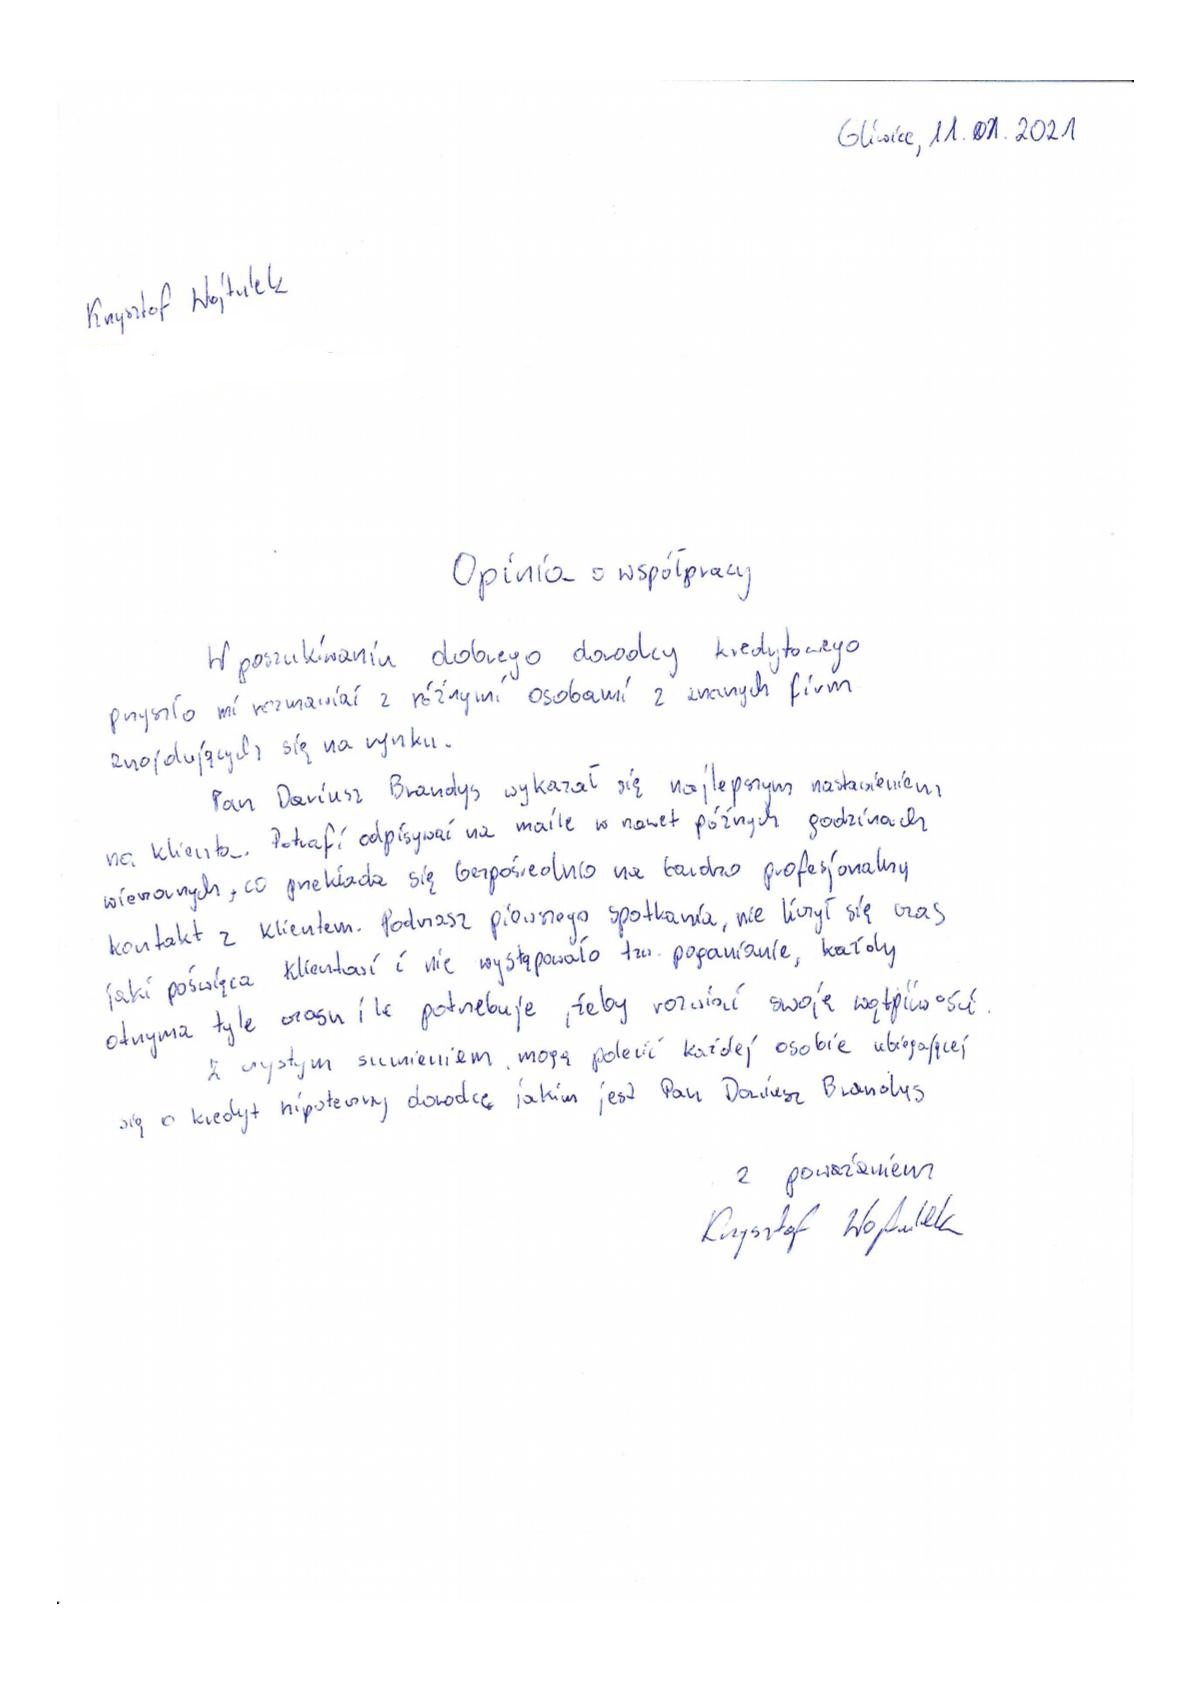 Gliwice, 11.01.2021
Krzysztof Wojtulek
Opinia o współpracy
W poszukiwaniu dobrego doradcy kredytowego
przyszło mi rozmawiać z różnymi osobami z znanych firm
znajdujących się na rynku.
Pan Dariusz Brandys wykazał się najlepszym nastawieniem
na klienta. Potrafi odpisywać na maile w nawet późnych godzinach
wieczornych, co przekłada się bezpośrednio na bardzo profesjonalny
kontakt z klientem. Podczas pierwszego spotkania, nie liczył się czas
jaki poświęca klientowi i nie występowało tzw. poganianie, każdy
otrzyma tyle czasu ile potrzebuje, żeby rozwiać swoje wątpliwości.
Z czystym sumieniem mogę polecić każdej osobie ubiegającej
się o kredyt hipoteczny doradcę jakim jest Pan Dariusz Brandys
z poważaniem
Krzysztof Wojtulek